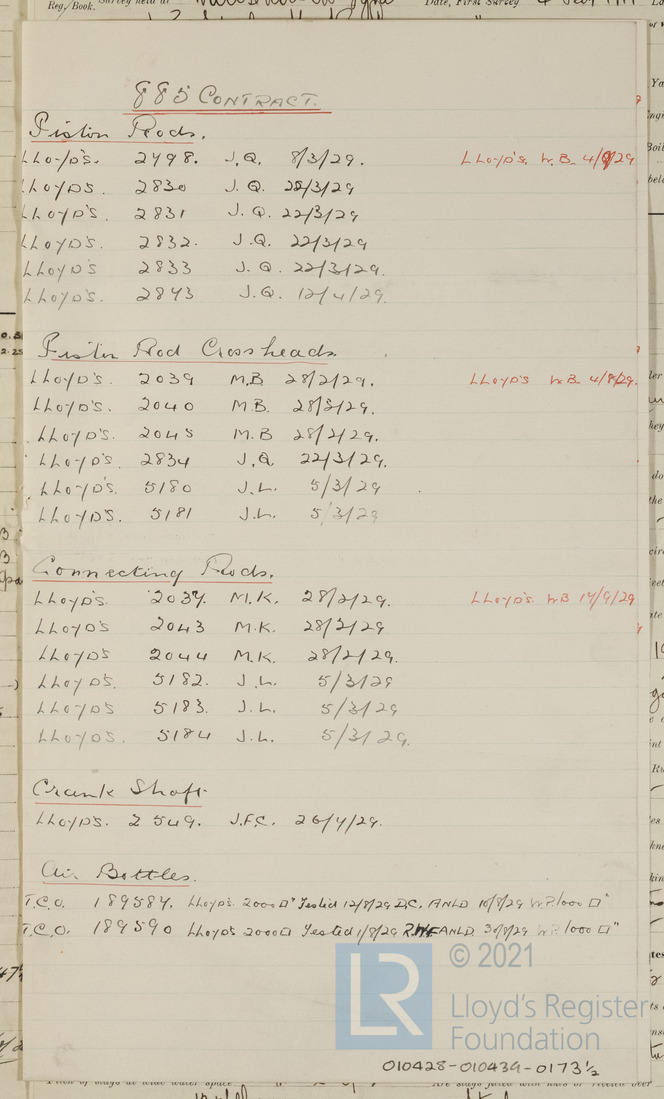 Reg. Book. Survey held at
Date, First Survey
885 CONTRACT.
Piston Rods.
LLOYD'S. 2498. J.Q. 8/3/29. LLOYD'S. W.B. 4/9/29
LLOYDS 2830 J.Q. 22/3/29
LLOYD'S. 2831 J.Q. 22/3/29
LLOYD'S. 2832. J.Q. 22/3/29
LLOYD'S 2833 J.Q. 22/3/29.
LLOYD'S. 2843 J.Q. 12/4/29.
Piston Rod Crossheads.
LLOYD'S. 2039 M.B 28/2/29. LLOYD'S W.B. 4/8/29.
LLOYD'S. 2040 M.B. 28/2/29.
LLOYD'S. 2045 M.B 28/2/29.
LLOYD'S. 2834 J.Q. 22/3/29.
LLOYD'S. 5180 J.L. 5/3/29
LLOYD'S. 5181 J.L. 5/3/29
Connecting Rods.
LLOYD'S. 2037. M.K. 28/2/29. LLOYD'S. W.B 14/9/29
LLOYD'S 2043 M.K. 28/2/29
LLOYDS 2044 M.K. 28/2/29.
LLOYDS. 5182. J.L. 5/3/29
LLOYDS 5183. J.L. 5/3/29
LLOYDS. 5184 J.L. 5/3/29.
Crank Shaft
LLOYD'S. 2549. J.F.C. 26/4/29.
Air Bottles.
T.C.O. 189587. LLOYD'S. 2000 □" Tested 12/8/29 D.C. ANLD 10/8/29 W.P. 1000 □"
T.C.O. 189590 LLOYD'S 2000 □ Tested 1/8/29 R.W.F ANLD 30/7/29 W.P. 1000 □"
© 2021
LR
Lloyd's Register
Foundation
010428-010439-0173½